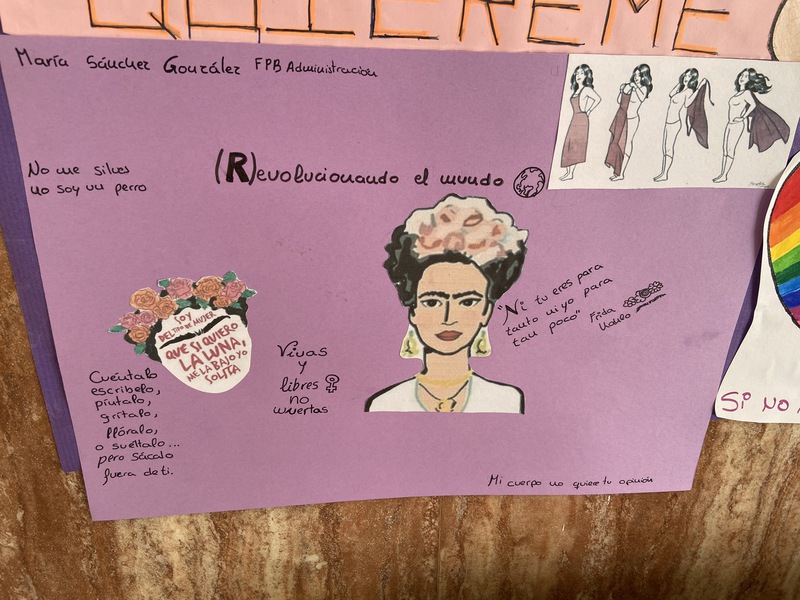 QUIÉREME
María Sánchez González FPB Administración
No me silves
no soy un perro
(R)evolucionando el mundo
SOY
DEL TIPO DE MUJER
QUE SI QUIERO
LA LUNA,
ME LA BAJO YO
SOLITA
Cuéntalo
escríbelo,
píntalo,
grítalo,
llóralo,
o suéltalo...
pero sácalo
fuera de ti.
Vivas
y
libres
no
muertas
"Ni tu eres para
tanto ni yo para
tan poco"
Frida
Kahlo
Mi cuerpo no quiere tu opinión
Si NO